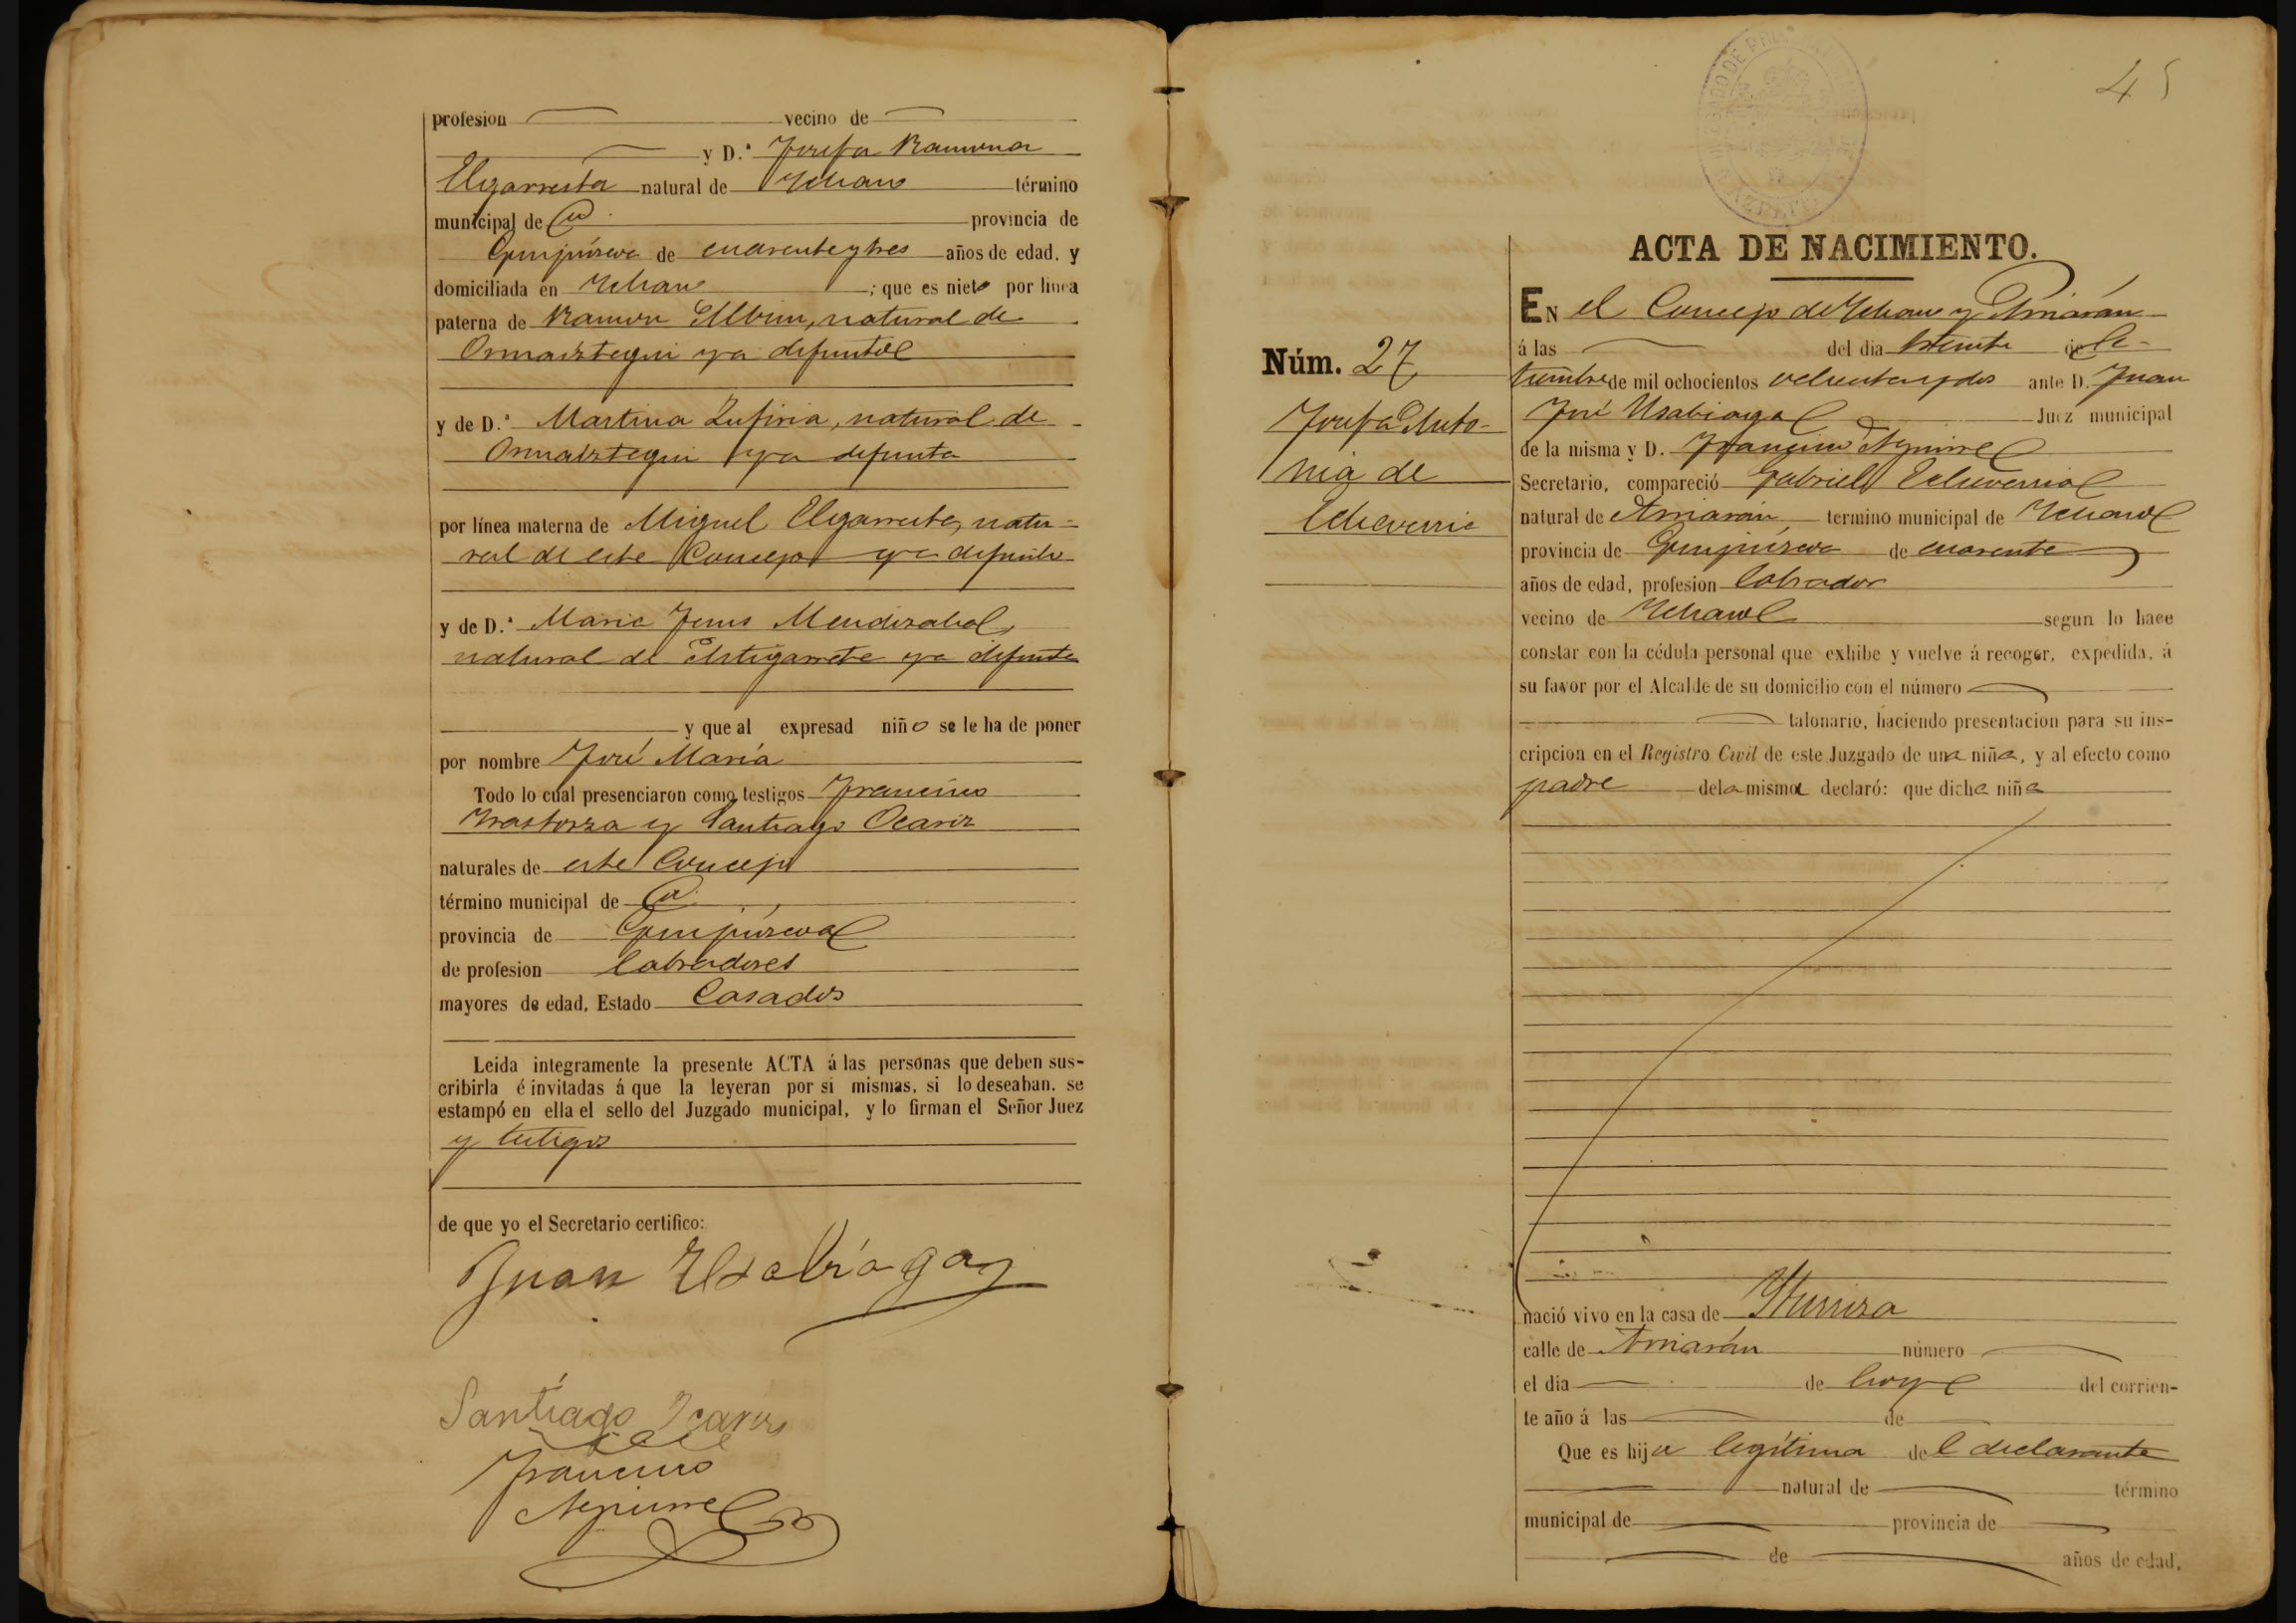 profesion vecino de
y D.ª Josefa Ramona
Elgarresta natural de Ichaso término
municipal de id. provincia de
Guipúzcoa de cuarenta y tres años de edad, y
domiciliada en Ichaso ; que es nieto por linea
paterna de Ramon Albisu, natural de
Ormaiztegui ya difunto
y de D.ª Martina Zufiria, natural de
Ormaiztegui ya difunta
por línea materna de Miguel Elgarresta, natu-
ral de este Concejo ya difunto
y de D.ª Maria Jesus Mendizabal,
natural de Astigarreta ya difunta
y que al expresad niño se le ha de poner
por nombre José María
Todo lo cual presenciaron como testigos Francisco
Irastorza y Santiago Ocariz
naturales de este Concejo
término municipal de id.
provincia de Guipúzcoa
de profesion labradores
mayores de edad, Estado Casados
Leida integramente la presente ACTA á las personas que deben sus-
cribirla é invitadas á que la leyeran por si mismas, si lo deseaban, se
estampó en ella el sello del Juzgado municipal, y lo firman el Señor Juez
y testigos
de que yo el Secretario certifico:
Juan Usabiaga
Santiago Ocariz
Francisco
Aguirre
45
ACTA DE NACIMIENTO.
Núm. 27
Josefa Anto-
nia de
Echeverria
EN el Concejo de Ichaso y Arriarán
á las del dia treinta de Se-
tiembre de mil ochocientos ochenta y dos ante D. Juan
José Usabiaga Juez municipal
de la misma y D. Francisco Aguirre
Secretario, compareció Gabriel Echeverria
natural de Arriarán termino municipal de Ichaso
provincia de Guipúzcoa de cuarenta
años de edad, profesion labrador
vecino de Ichaso segun lo hace
constar con la cédula personal que exhibe y vuelve á recoger, expedida, á
su favor por el Alcalde de su domicilio con el número
talonario, haciendo presentacion para su ins-
cripcion en el Registro Civil de este Juzgado de una niña, y al efecto como
padre de la misma declaró: que dicha niña
nació vivo en la casa de Iturrioza
calle de Arriarán número
el dia de hoy del corrien-
te año á las de
Que es hija legítima del declarante
natural de término
municipal de provincia de
de años de edad,